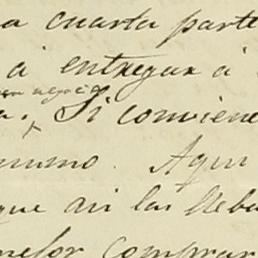 a cuarta parte
á entregar á
negocio
a. Si conviene
mismo. Aqui
que asi las deba
mejor comprar